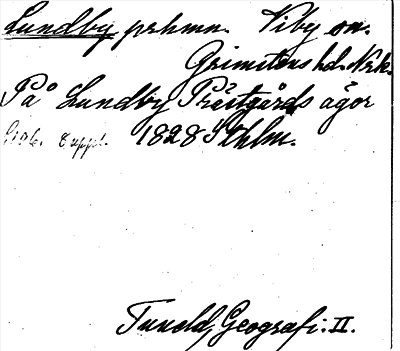 Lundby prhmn. Viby sn.
Grimstens hd. Nrk.
På Lundby Prästgårds ägor
suppl. 1828 Sthlm.
Tuneld, Geografi. II.